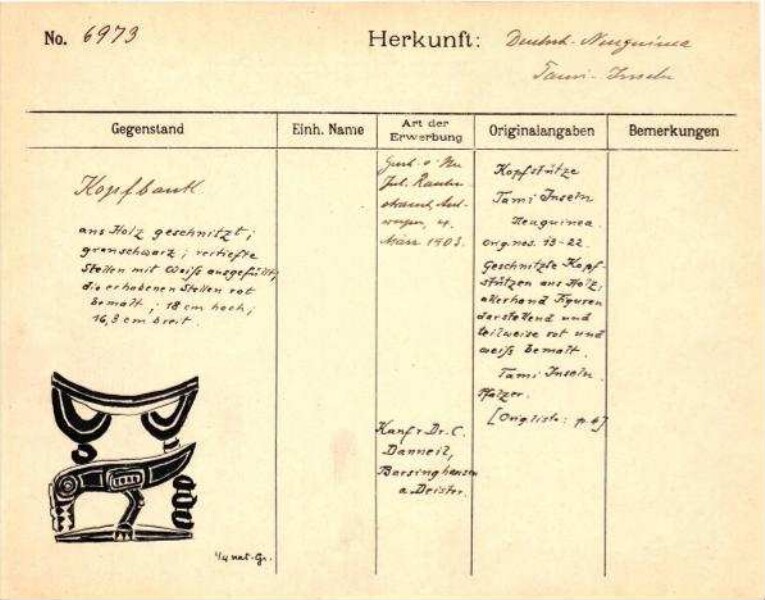 No. 6973
Herkunft: Deutsch-Neuguinea
Tami-Inseln
Gegenstand
Einh. Name
Art der
Erwerbung
Originalangaben
Bemerkungen
Kopfbank
aus Holz geschnitzt;
grauschwarz; vertiefte
Stellen mit Weiss ausgefüllt,
die erhabenen Stellen rot
bemalt; 18 cm hoch;
16,3 cm breit.
1/4 nat. Gr.
Jul.
März 1903.
Kauf v Dr. C.
Danneil,
Barsinghausen
a. Deister.
Kopfstütze
Tami Inseln
Neuguinea.
orig. nos. 13-22.
Geschnitzte Kopf-
stützen aus Holz,
allerhand Figuren
darstellend und
teilweise rot und
weiss bemalt.
Tami Inseln.
Pfalzer.
[Orig. liste: p. 6]